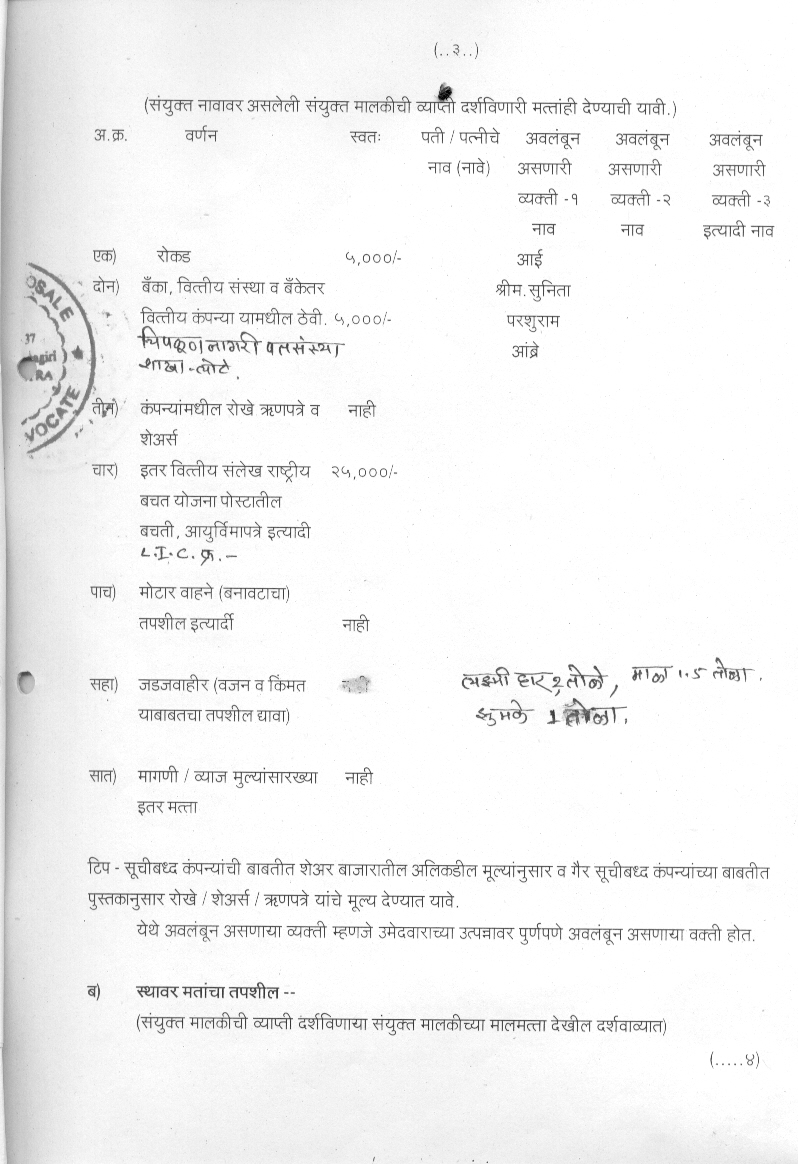 (..३..)
(संयुक्त नावावर असलेली संयुक्त मालकीची व्याप्ती दर्शविणारी मत्तांही देण्याची यावी.)
अ.क्र. वर्णन स्वतः पती / पत्नीचे अवलंबून अवलंबून अवलंबून
नाव (नावे) असणारी असणारी असणारी
व्यक्ती -१ व्यक्ती -२ व्यक्ती -३
नाव नाव इत्यादी नाव
एक) रोकड ५,०००/- आई
दोन) बँका, वित्तीय संस्था व बँकेतर श्रीम.सुनिता
वित्तीय कंपन्या यामधील ठेवी. ५,०००/- परशुराम
चिपळूण नागरी पतसंस्था आंब्रे
शाखा-लोटे.
OSALE
37
agiri)
RA
VOCATE
तीन) कंपन्यांमधील रोखे ऋणपत्रे व नाही
शेअर्स
चार) इतर वित्तीय संलेख राष्ट्रीय २५,०००/-
बचत योजना पोस्टातील
बचती, आयुर्विमापत्रे इत्यादी
L.I.C. क्र.-
पाच) मोटार वाहने (बनावटाचा)
तपशील इत्यार्दी नाही
सहा) जडजवाहीर (वजन व किंमत लक्ष्मी हार 2 तोळे, माळ 1.5 तोळा.
याबाबतचा तपशील द्यावा) झुमके 1 तोळा.
सात) मागणी / व्याज मुल्यांसारख्या नाही
इतर मत्ता
टिप - सूचीबध्द कंपन्यांची बाबतीत शेअर बाजारातील अलिकडील मूल्यांनुसार व गैर सूचीबध्द कंपन्यांच्या बाबतीत
पुस्तकानुसार रोखे / शेअर्स / ऋणपत्रे यांचे मूल्य देण्यात यावे.
येथे अवलंबून असणाया व्यक्ती म्हणजे उमेदवाराच्या उत्पन्नावर पुर्णपणे अवलंबून असणाया वक्ती होत.
ब) स्थावर मतांचा तपशील --
(संयुक्त मालकीची व्याप्ती दर्शविणाया संयुक्त मालकीच्या मालमत्ता देखील दर्शवाव्यात)
(.....४)